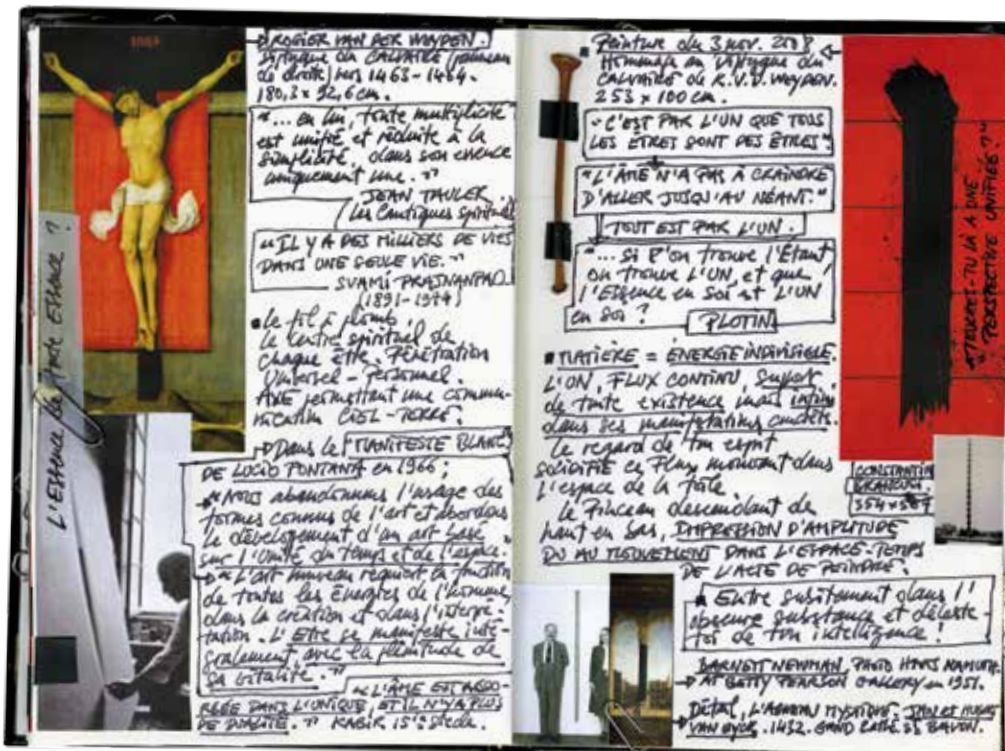 ROGIER VAN DER WEYDEN.
Diptyque du CALVAIRE (panneau
de droite) vers 1463-1464.
180,3 x 92,6 cm.
"... en lui, toute multiplicité
est unifiée et réduite à la
simplicité, dans son essence
uniquement une."
JEAN TAULER
(Les Cantiques spirituels
"IL Y A DES MILLIERS DE VIES
DANS UNE SEULE VIE."
SVAMI PRAJNANPAD
(1891-1974)
Le fil à plomb,
le centre spirituel de
chaque être. Pénétration
Universel - Personnel.
AXE permettant une commu-
nication CIEL-TERRE.
Dans le "MANIFESTE BLANC"
DE LUCIO FONTANA en 1966 ;
"Nous abandonnons l'usage des
formes connues de l'art et abordons
le développement d'un art basé
sur l'Unité du temps et de l'espace."
"L'art nouveau requiert la fonction
de toutes les énergies de l'homme,
dans la création et dans l'interpré-
tation. L'Etre se manifeste inté-
gralement, avec la plénitude de
sa vitalité."
"L'ÂME EST ABSOR-
BÉE DANS L'UNIQUE, ET IL N'Y A PLUS
DE DUALITÉ." KABIR 15e siècle.
L'Essence de toute ESSENCE ?
Peinture du 3 nov. 2008
Hommage au diptyque du
CALVAIRE de R.V.D. WEYDEN.
253 x 100 cm.
"C'EST PAR L'UN QUE TOUS
LES ÊTRES SONT DES ÊTRES"
"L'ÂME N'A PAS À CRAINDRE
D'ALLER JUSQU'AU NÉANT."
TOUT EST PAR L'UN.
"... si l'on trouve l'Étant
on trouve l'UN, et que
l'Essence en Soi est l'UN
en soi ?
PLOTIN
MATIÈRE = ÉNERGIE INDIVISIBLE.
L'UN, FLUX CONTINU, support
de toute existence mais intime
dans ses manifestations concrètes.
Le regard de ton esprit
SOLIDIFIE ce Flux mouvant dans
l'espace de la toile
Le Pinceau descendant de
haut en bas, IMPRESSION D'AMPLITUDE
DU AU MOUVEMENT DANS L'ESPACE-TEMPS
DE L'ACTE DE PEINDRE.
Entre subitement dans l'
obscure substance et déleste-
toi de ton intelligence !
BARNETT NEWMAN, PHOTO HANS NAMUTH
AT BETTY PEARSON GALLERY en 1951.
Détail, L'AGNEAU MYSTIQUE, JAN ET HUBERT
VAN EYCK. 1432. GAND CATH. ST BAVON.
"TOUCHES-TU LÀ A UNE
"PERSPECTIVE UNIFIÉE ?"
CONSTANTIN
BRANCUSI